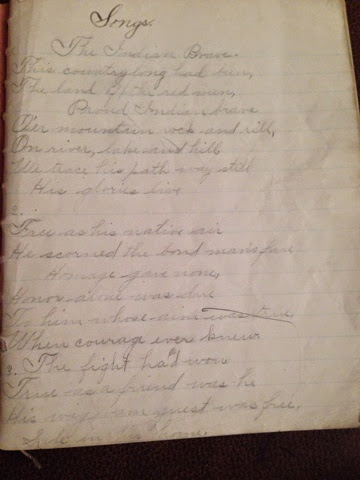 Songs.
The Indian Brave.
This country long had been,
The land of the red men,
Proud Indian brave
O'er mountain rock and rill,
On river, lake and hill
We trace his path way still
His glories live
2.
Free as his native air
He scorned the bond man's fare
Homage gave none,
Honor alone was due
To him whose aim was true
When courage ever knew
3. The fight had won
True as a friend was he
His wigwam guest was free,
in his home.